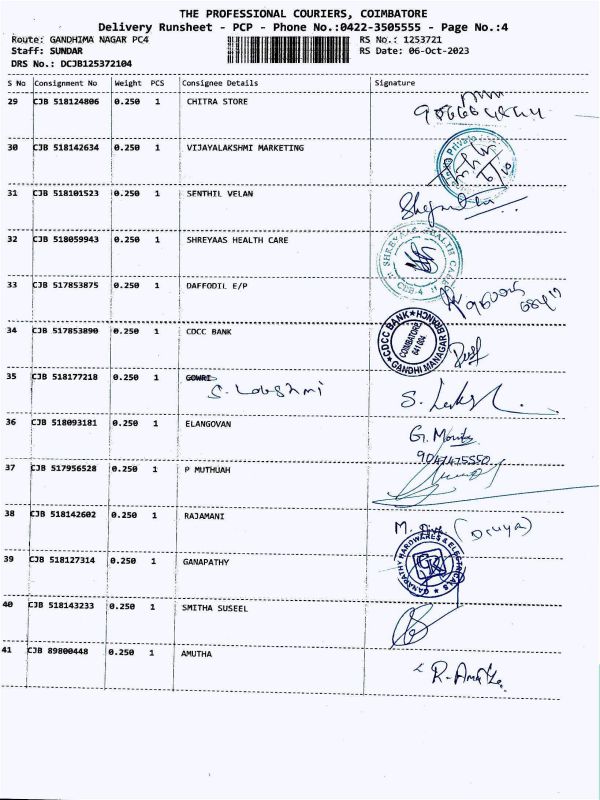 THE PROFESSIONAL COURIERS, COIMBATORE
Delivery Runsheet - PCP - Phone No.:0422-3505555 - Page No.:4
Route: GANDHIMA NAGAR PC4 RS No.: 1253721
Staff: SUNDAR RS Date: 06-Oct-2023
DRS No.: DCJB125372104
S No Consignment No Weight PCS Consignee Details Signature
29 CJB 518124806 0.250 1 CHITRA STORE
30 CJB 518142634 0.250 1 VIJAYALAKSHMI MARKETING
31 CJB 518101523 0.250 1 SENTHIL VELAN
32 CJB 518059943 0.250 1 SHREYAAS HEALTH CARE
SHREYAAS HEALTH CARE
CBE-4
33 CJB 517853875 0.250 1 DAFFODIL E/P
34 CJB 517853890 0.250 1 CDCC BANK
CDCC BANK GANDHI MANAGAR BRANCH
COIMBATORE
641004
35 CJB 518177218 0.250 1 GOWRI
S. Lakshmi
36 CJB 518093181 0.250 1 ELANGOVAN
9047475550
37 CJB 517956528 0.250 1 P MUTHUAH
38 CJB 518142602 0.250 1 RAJAMANI
M. Divya (Divya)
39 CJB 518127314 0.250 1 GANAPATHY
GANAPATHY HARDWARES & ELECTRICALS
GK
40 CJB 518143233 0.250 1 SMITHA SUSEEL
41 CJB 89800448 0.250 1 AMUTHA